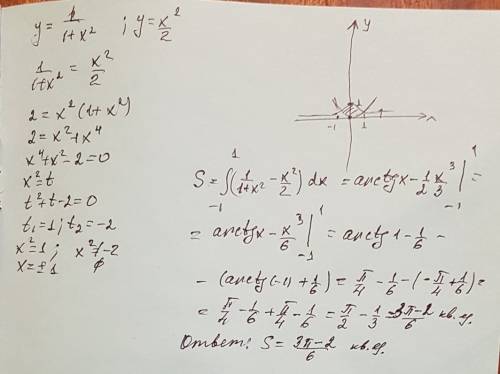 y = 1/(1+x²) ; y = x²/2
1/(1+x²) = x²/2
2 = x²(1+x²)
2 = x²+x⁴
x⁴+x²-2=0
x²=t
t²+t-2=0
t₁=1; t₂=-2
x²=1; x²≠-2
x=±1 ∅
y
1
-1 1 x
S = ∫₋₁¹ (1/(1+x²) - x²/2) dx = arctg x - 1/2 x³/3 |₋₁¹ =
= arctg x - x³/6 |₋₁¹ = arctg 1 - 1/6 -
- (arctg(-1) + 1/6) = π/4 - 1/6 - (-π/4 + 1/6) =
= π/4 - 1/6 + π/4 - 1/6 = π/2 - 1/3 = (3π-2)/6 кв.ед.
Ответ: S = (3π-2)/6 кв.ед.